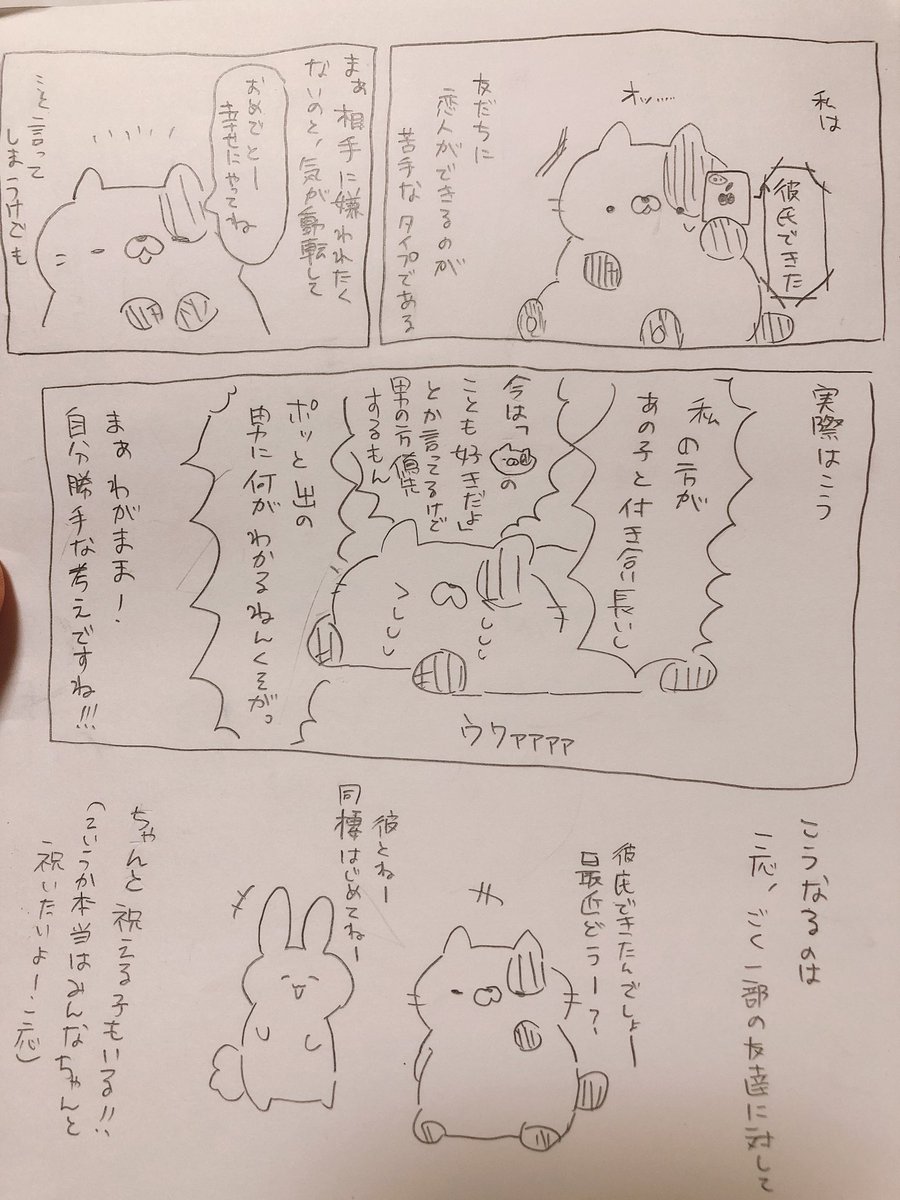 私は
彼氏できた
オッ……
友だちに
恋人ができるのが
苦手なタイプである
まぁ 相手に嫌われたく
ないのと、気が動転して
おめでとー
幸せにやってね
こと言って
しまうけども
実際はこう
私の方が
あの子と付き合い長いし
今は「の
ことも好きだよ」
とか言ってるけど
男の方優先
するもん
ポッと出の
男に何がわかるねんくそが。
まぁ わがまま!
自分勝手な考えですね!!!
ウワァァァァ
こうなるのは
一応、ごく一部の友達に対して
彼氏できたんでしょー
最近どうー?
彼とねー
同棲はじめてねー
ちゃんと祝える子もいる!!
(というか本当はみんなちゃんと
祝いたいよー、一応)